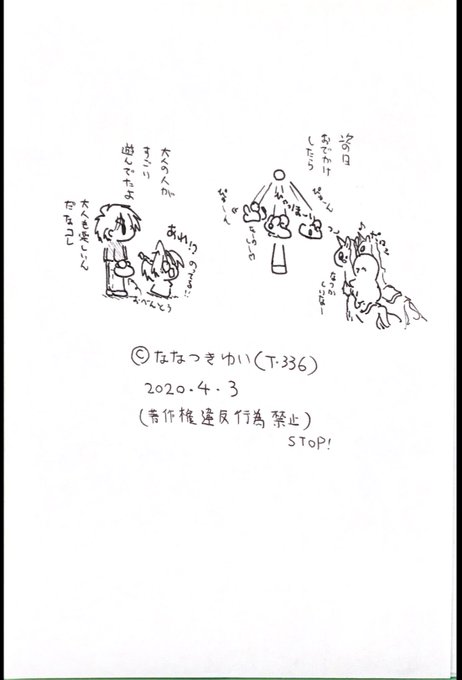 次の日
おでかけ
したら
ぴょーん
ぴょーん
やっほーい
たのしーや
なつか
しいなー
大人の人が
すごい
遊んでたよ
大人も楽しいん
だなコレ
あれ!?
のってる!!
おべんとう
©ななつきゆい(T.336)
2020.4.3
(著作権違反行為禁止)
STOP!